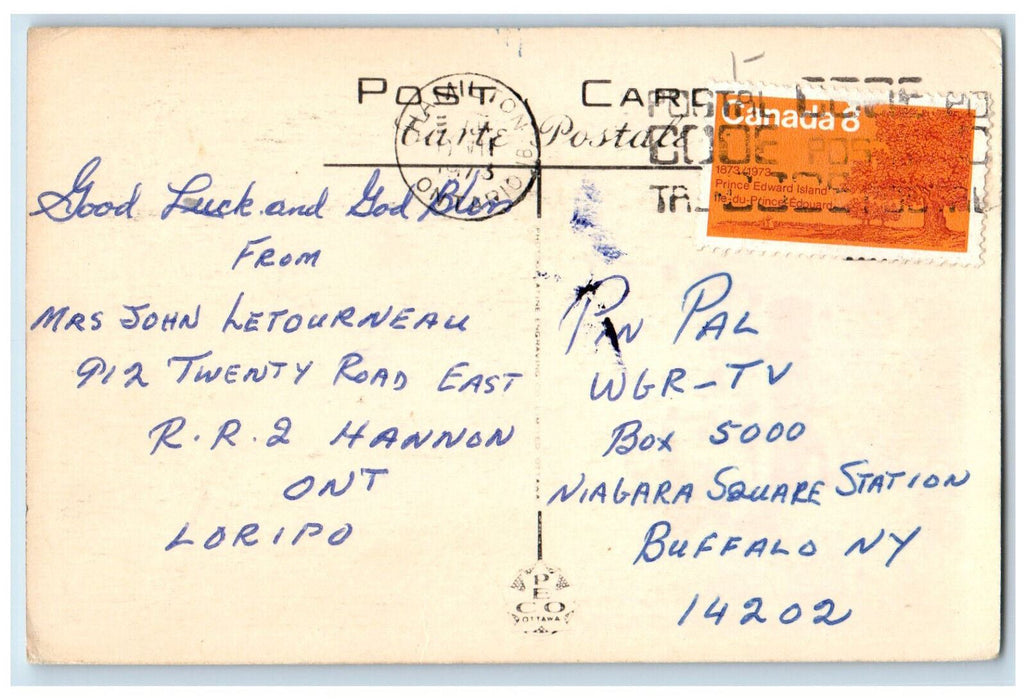 POST CARD
Carte Postale
HAMILTON
1973
ONTARIO
POSTAL CODE
CODE POSTAL
Canada 8
1873/1973
Prince Edward Island
Île-du-Prince-Édouard
Good Luck and God Bless
FROM
MRS JOHN LETOURNEAU
912 TWENTY ROAD EAST
R.R.2 HANNON
ONT
LORIPO
PAN PAL
WGR-TV
BOX 5000
NIAGARA SQUARE STATION
BUFFALO NY
14202
PECO
OTTAWA